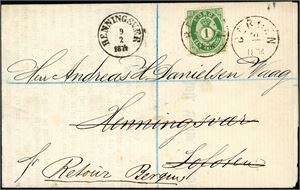 HENNINGSVÆR
9
2
1874
1
BERGEN
Herr Andreas H. Danielsen Vaag
Henningsvær
Lofoten
Retour Bergen